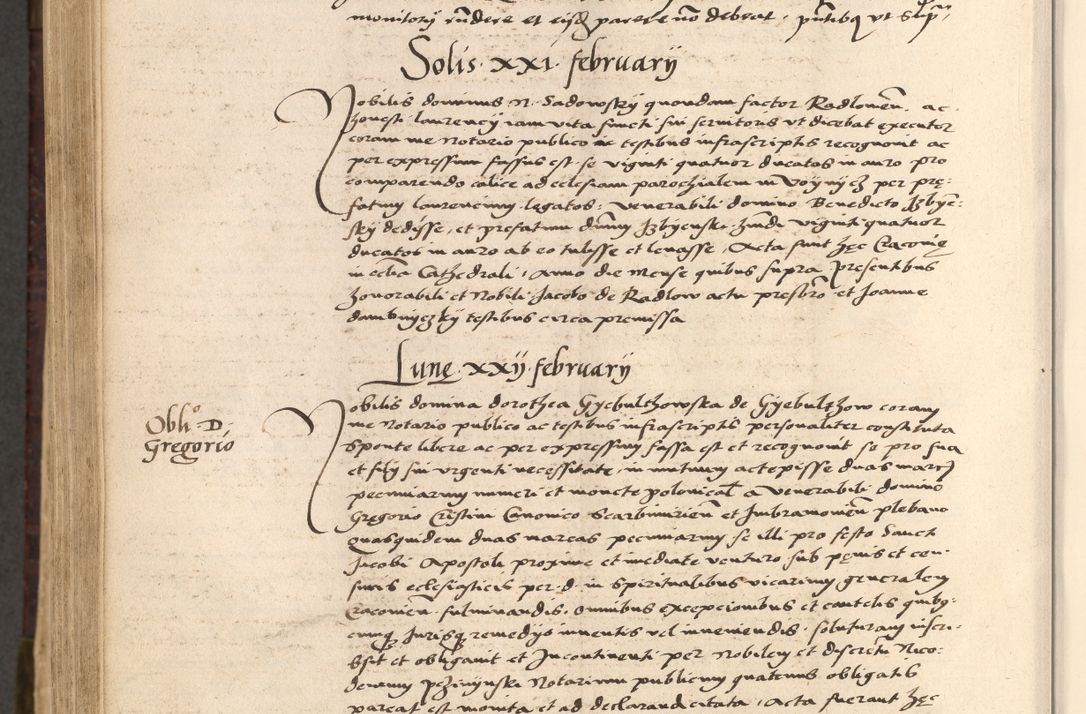 monitorÿ rñdere et eisdẽ parere nõ debeat, pñtibq vt supˢ
Solis xxi februarÿ
Nobilis dominus N. Sadowskÿ quondam factor Radlowieñ. ac
honesti laurencÿ iam vita functi sui seruitoris vt dicebat executor
coram me Notario publico ac testibus infrascriptis recognouit ac
per expressum fassus est se viginti quatuor ducatos in auro pro
comparando calice ad ecclesiam parochialem in Voÿnÿcz per prę-
fatum laurencium legatos, venerabili domino Benedicto Izbÿeñ-
skÿ dedisse, et prefatum dñum Izbÿenski hmõi viginti quatuor
ducatos in auro ab eo tulisse et leuasse, Acta sunt hęc Cracouię
in ecclia Cathedrali, Anno die mense quibus supra presentibus
honorabili et Nobili Jacobo de Radlow actu presbro et Joanne
damunÿczkÿ testibus circa premissa
Lunę xxÿ februarÿ
Oblio D.
Gregorio
Nobilis domina dorothea Gÿebulthowska de Gÿebulthow coram
me Notario publico ac testibus infrascriptis personaliter constituta
sponte libere ac per expressum fassa est et recognouit se pro sua
et filÿ sui vrgenti necessitate, in mutuum accepisse duas marcas
pecuniarum numeri et monete polonicał a venerabili domino
Gregorio Cristini Canonico Scarbimirieñ et Imbramouieñ plebano
Quasquidem duas marcas pecuniarum se illi pro festo Sancti
Jacobi Apostoli proxime et imediate venturo sub penis et cen-
suris ecclesiasticis per d. in Spiritualibus vicarium generalem
Cracouieñ. fulminandis, omnibus excepcionibus et cautelis quibq-
cunq Jurisq remedÿs inuentis vel inueniendis, soluturam inscri-
psit et obligauit et Incontinenti per Nobilem et discretũ Nico-
demum Notarium publicum quatenus obligatis
pareat est monita et ad declarandũ citata, Acta fuerant hęc